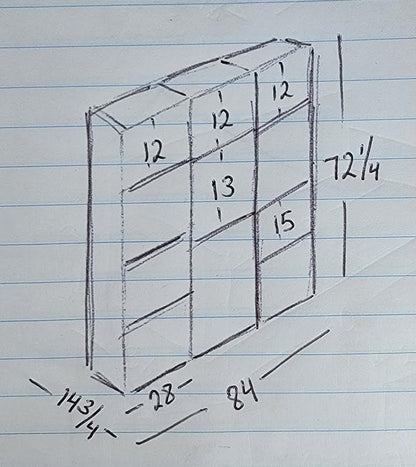 12
12
12
13
15
72 1/4
14 3/4
28
84